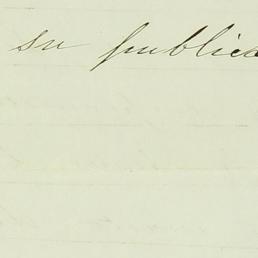 su publica